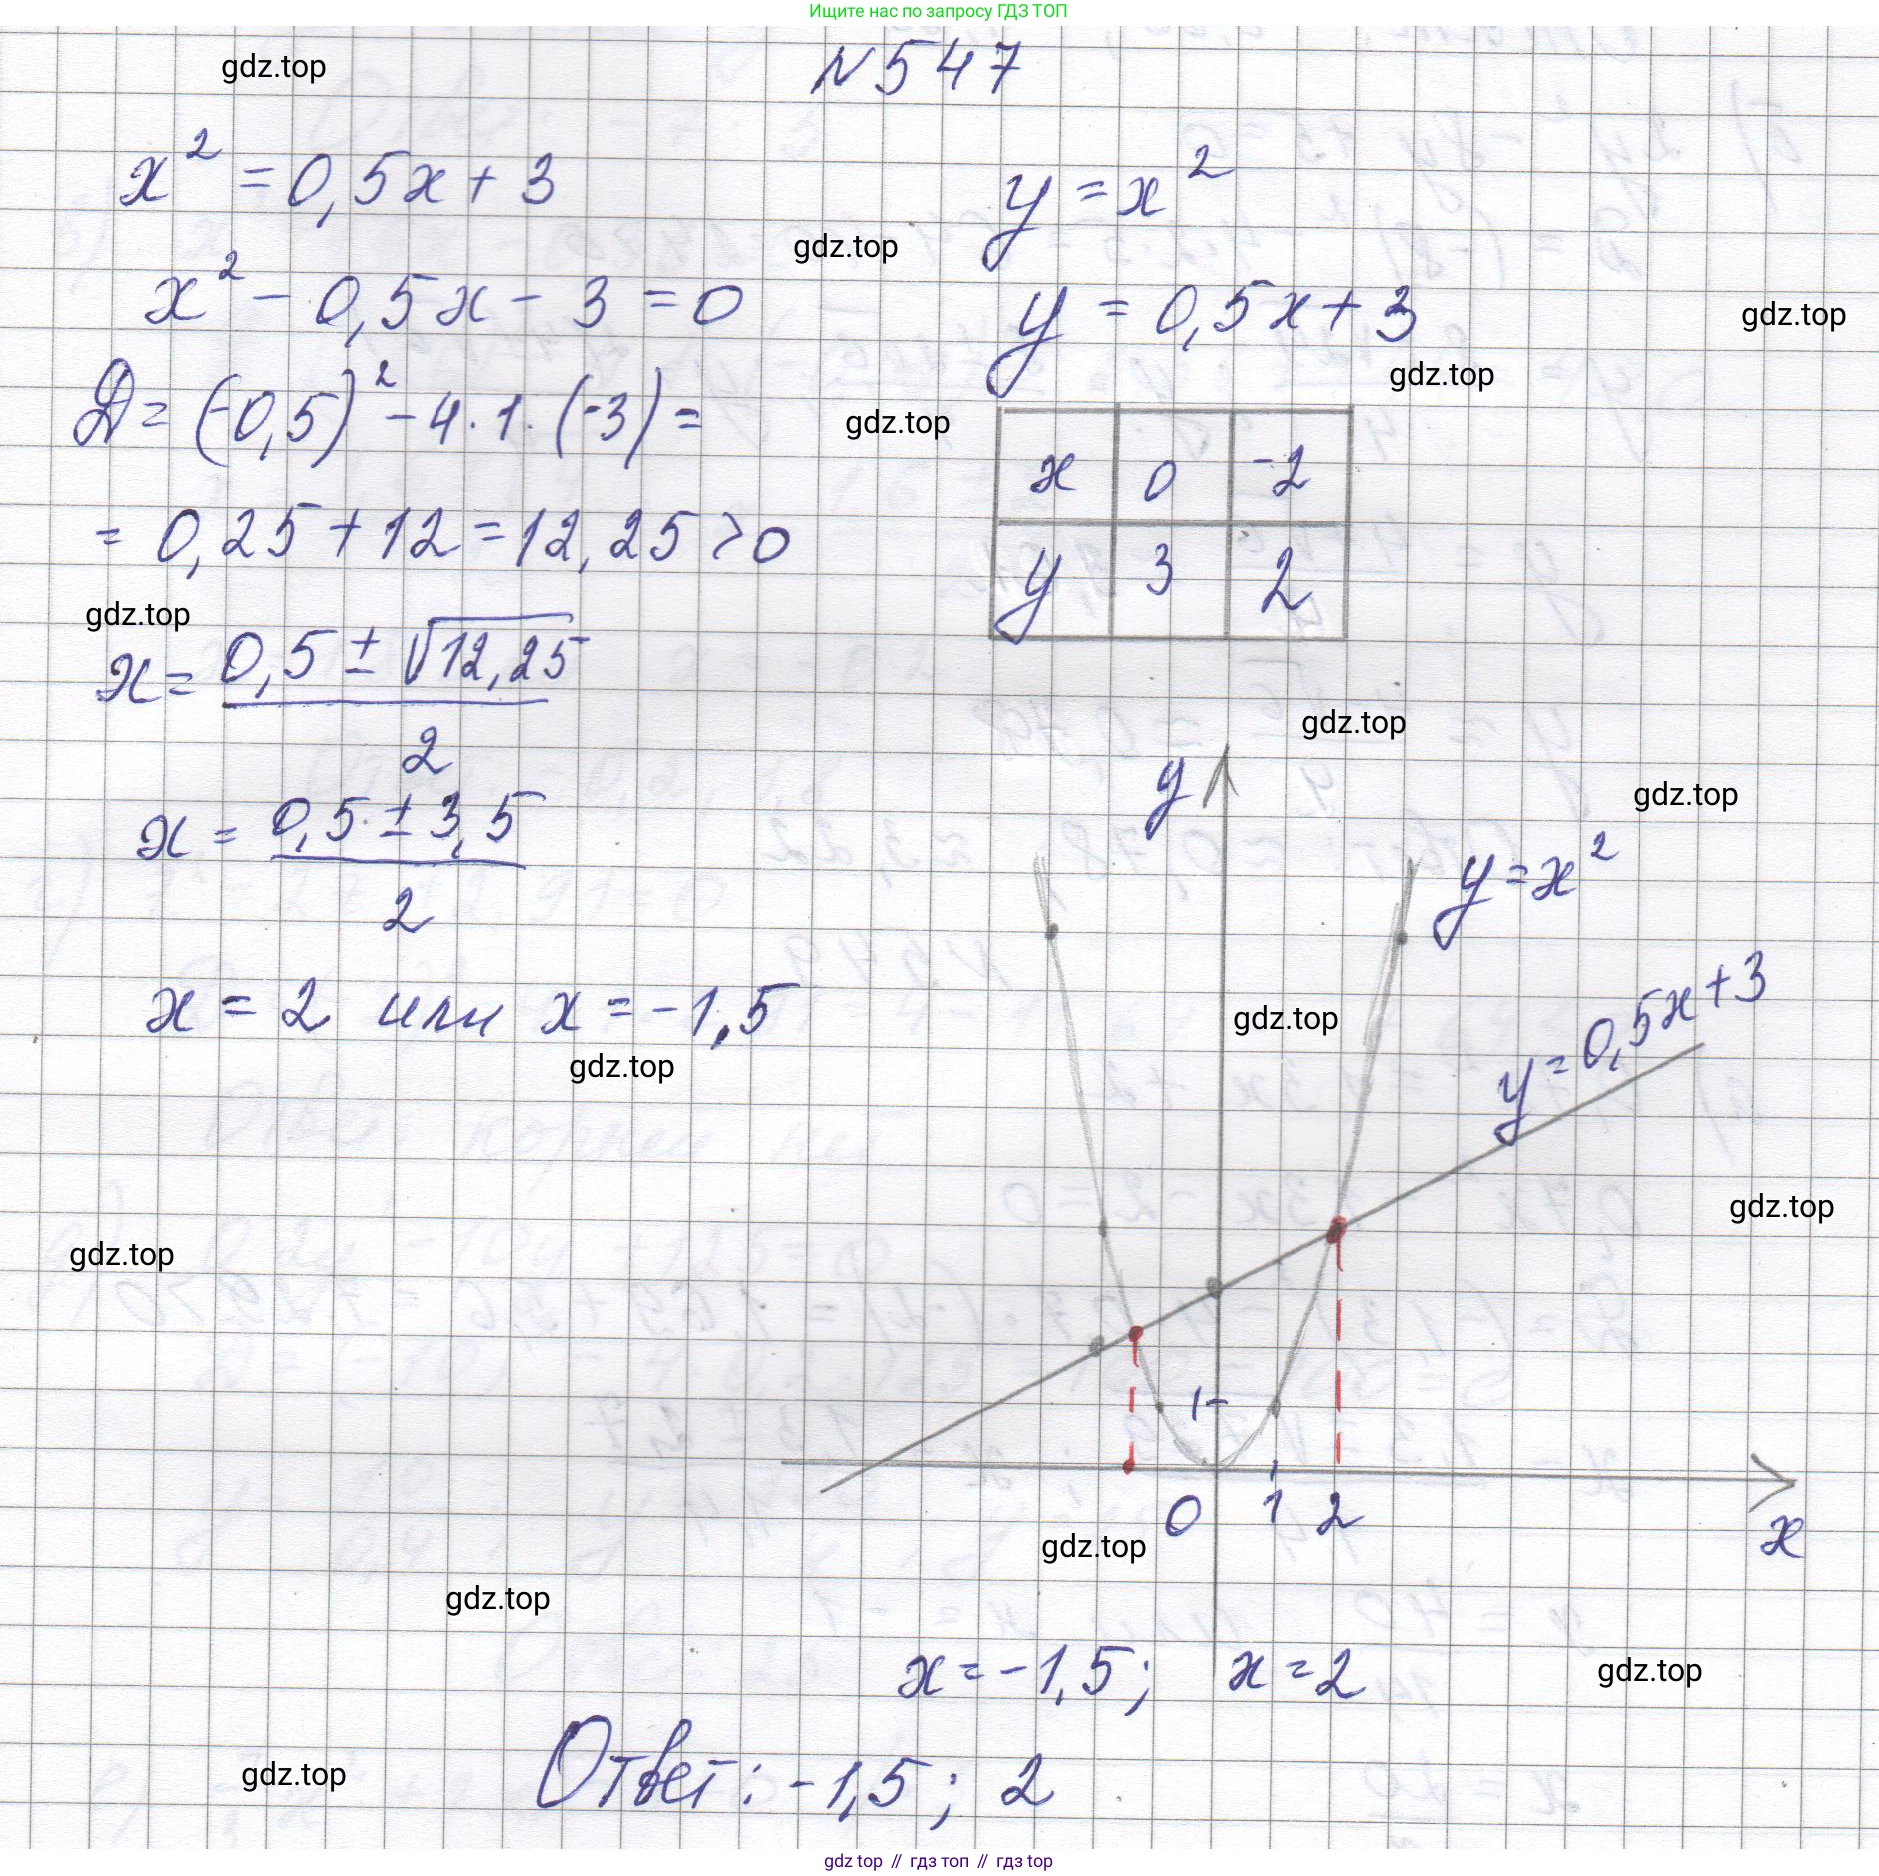 Ищите нас по запросу ГДЗ ТОП
N 547
gdz.top
x² = 0,5x + 3
x² - 0,5x - 3 = 0
D = (-0,5)² - 4 · 1 · (-3) =
= 0,25 + 12 = 12,25 > 0
gdz.top
x = (0,5 ± √12,25) / 2
x = (0,5 ± 3,5) / 2
x = 2 или x = -1,5
gdz.top
gdz.top
y = x²
gdz.top
y = 0,5x + 3
gdz.top
gdz.top
gdz.top
x 0 -2
y 3 2
gdz.top
y
gdz.top
y = x²
gdz.top
y = 0,5x + 3
gdz.top
1
0 1 2
x
gdz.top
gdz.top
x = -1,5; x = 2
gdz.top
Ответ: -1,5; 2
gdz.top
gdz top // гдз топ // гдз top